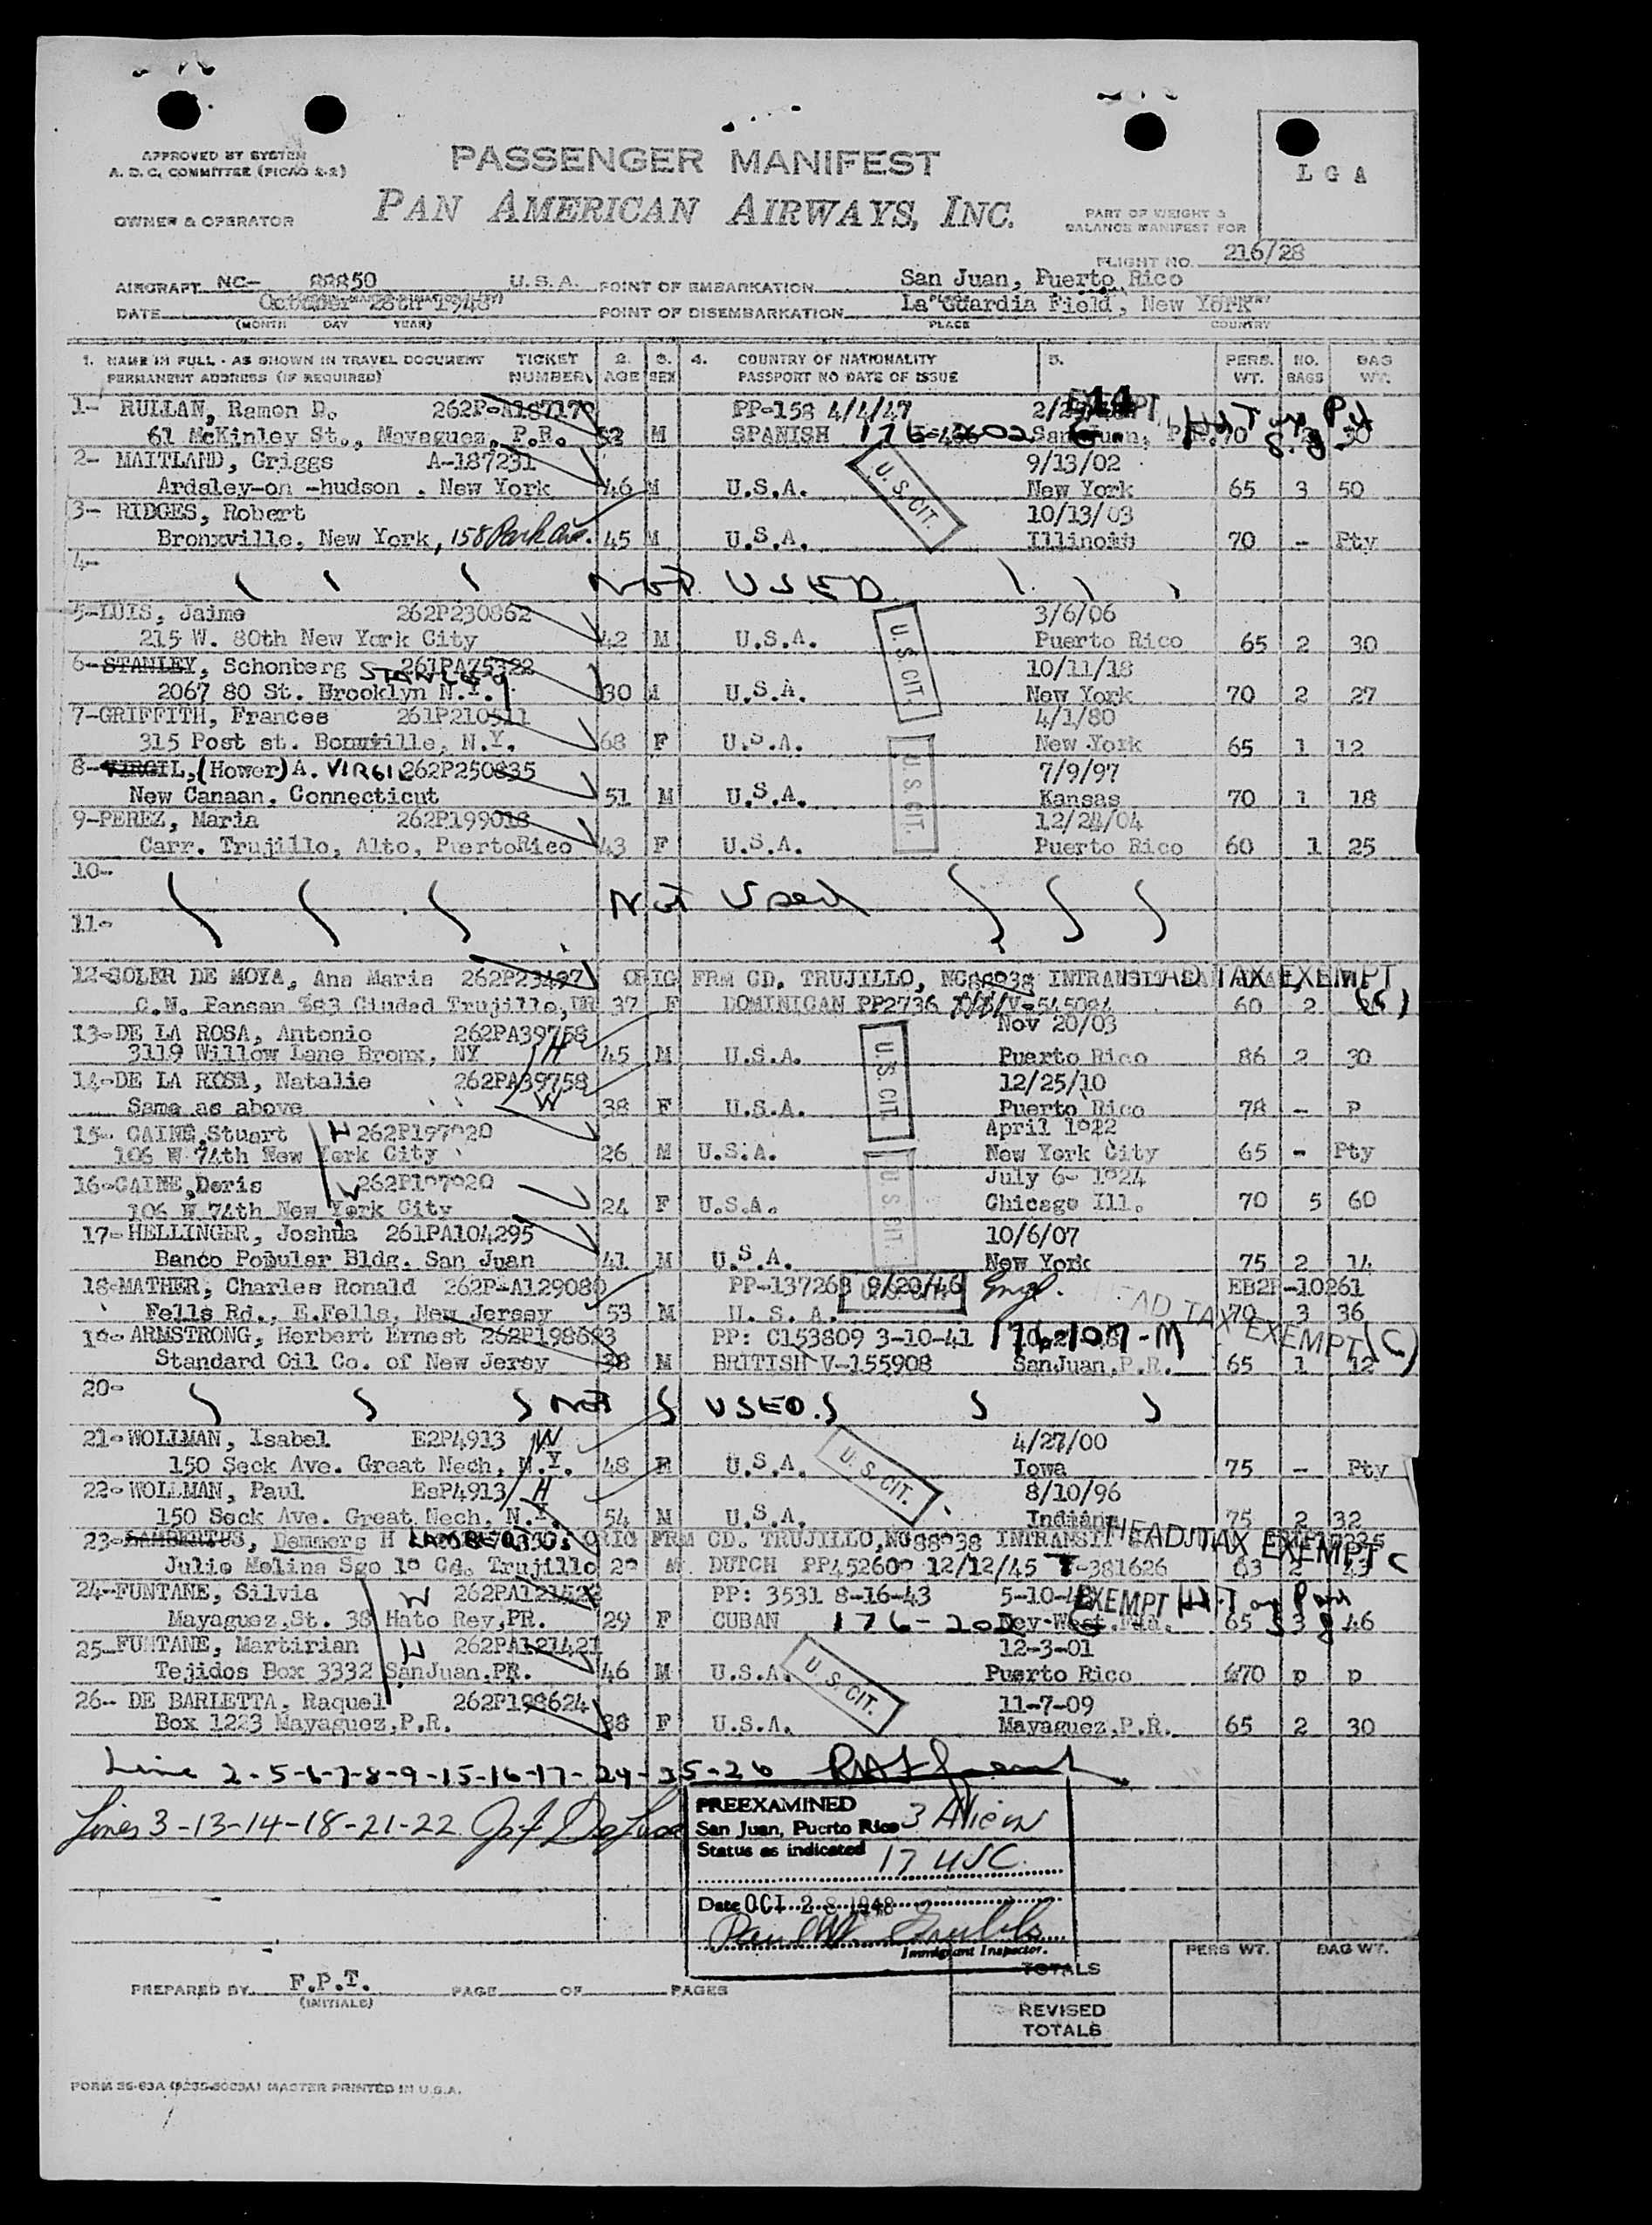 APPROVED BY SYSTEM
A. D. C. COMMITTEE (PICAO 2-2)
OWNER & OPERATOR
PASSENGER MANIFEST
PAN AMERICAN AIRWAYS, INC.
L G A
PART OF WEIGHT &
BALANCE MANIFEST FOR
FLIGHT NO. 216/28
AIRCRAFT NC- 88850 U.S.A. POINT OF EMBARKATION San Juan, Puerto Rico
DATE October 28th 1948 POINT OF DISEMBARKATION La Guardia Field, New York
(MONTH DAY YEAR) PLACE COUNTRY
1. NAME IN FULL - AS SHOWN IN TRAVEL DOCUMENT TICKET 2. 3. 4. COUNTRY OF NATIONALITY 5. PERS. NO. BAG
PERMANENT ADDRESS (IF REQUIRED) NUMBER AGE SEX PASSPORT NO DATE OF ISSUE WT. BAGS WT.
1- RULLAN, Ramon D. PP-158 4/4/47 EXEMPT
61 McKinley St., Mayaguez, P.R. 52 M SPANISH 176-202 San Juan, P.R. 70
2- MAITLAND, Griggs A-187231 9/13/02
Ardsley-on -hudson . New York 46 M U.S.A. U. S. CIT. New York 65 3 50
3- RIDGES, Robert 10/13/03
Bronxville, New York, 158 Park Ave. 45 M U.S.A. Illinois 70 - Pty
4-
NOT USED
5-LUIS, Jaime 262P230862 3/6/06
215 W. 80th New York City 42 M U.S.A. U. S. CIT. Puerto Rico 65 2 30
6-STANLEY, Schonberg STANLEY 261PA75322 10/11/18
2067 80 St. Brooklyn N.Y. 30 M U.S.A. New York 70 2 27
7-GRIFFITH, Frances 261P210511 4/1/80
315 Post st. N.Y. 68 F U.S.A. New York 65 1 12
8-VIRGIL, (Hower) A. VIRGIL 262P250835 U. S. CIT. 7/9/97
New Canaan, Connecticut 51 M U.S.A. Kansas 70 1 18
9-PEREZ, Maria 262P199018 12/24/04
Carr. Trujillo, Alto, PuertoRico 43 F U.S.A. Puerto Rico 60 1 25
10-
Not Used
11-
12-SOLER DE MOYA, Ana Maria ORIG FRM CD. TRUJILLO, NC88938 INTRANSIT HEAD TAX EXEMPT
C.N. Pensan Ciudad Trujillo, DR 37 F DOMINICAN PP2736 60 2
13-DE LA ROSA, Antonio 262PA39758 Nov 20/03
3119 Willow Lane Bronx, NY H 45 M U.S.A. U. S. CIT. Puerto Rico 86 2 30
14-DE LA ROSA, Natalie 262PA39758 12/25/10
Same as above W 38 F U.S.A. Puerto Rico 78 - P
15- CAINE, Stuart H 262P197920 April 1922
106 W 74th New York City 26 M U.S.A. New York City 65 - Pty
16-CAINE, Doris W 262P197920 U. S. CIT. July 6- 1924
106 W 74th New York City 24 F U.S.A. Chicago Ill. 70 5 60
17- HELLINGER, Joshua 261PA104295 10/6/07
Banco Popular Bldg. San Juan 41 M U.S.A. New York 75 2 14
18-MATHER, Charles Ronald 262P-A129080 PP-137268 8/20/46 Engl. EB2P-10261
Fells Rd., E.Fells, New Jersey 53 M U. S. A. 70 3 36
HEAD TAX EXEMPT (C)
19- ARMSTRONG, Herbert Ernest 262P198693 PP: C153809 3-10-41 176/107-M
Standard Oil Co. of New Jersy 38 M BRITISH V-155908 SanJuan, P.R. 65 1 12
20-
NOT USED
21-WOLLMAN, Isabel E2P4913 W 4/27/00
150 Seck Ave. Great Nech, N.Y. 48 F U.S.A. U. S. CIT. Iowa 75 - Pty
22- WOLLMAN, Paul EsP4913 H 8/10/96
150 Seck Ave. Great Nech, N.Y. 54 M U.S.A. Indiana 75 2 32
23-LAMBERTUS, Demmers H LAMBERTUS ORIG FRM CD. TRUJILLO, NC88938 INTRANSIT HEAD TAX EXEMPT
Julio Molina Sgo 19 Cd. Trujillo 29 M. DUTCH PP452600 12/12/45 T-381626 63 2 43 EXEMPT C
24-FUNTANE, Silvia W PP: 3531 8-16-43 EXEMPT
Mayaguez, St. 38 Hato Rey, PR. 29 F CUBAN 176-202 65 3 46
25-FUNTANE, Martirian H 262PA121421 12-3-01
Tejidos Box 3332 SanJuan, PR. 46 M U.S.A. U. S. CIT. Puerto Rico 70 p p
26- DE BARLETTA, Raquel 262P198624 11-7-09
Box 1223 Mayaguez, P.R. 38 F U.S.A. Mayaguez, P.R. 65 2 30
Line 2-5-6-7-8-9-15-16-17-24-25-26
Lines 3-13-14-18-21-22
PREEXAMINED
San Juan, Puerto Rico 3 Aliens
Status as indicated 17 USC
Date OCT 28 1948
Immigrant Inspector.
PERS WT. BAG WT.
TOTALS
REVISED
TOTALS
PREPARED BY F.P.T. PAGE OF PAGES
(INITIALS)
MASTER PRINTED IN U.S.A.